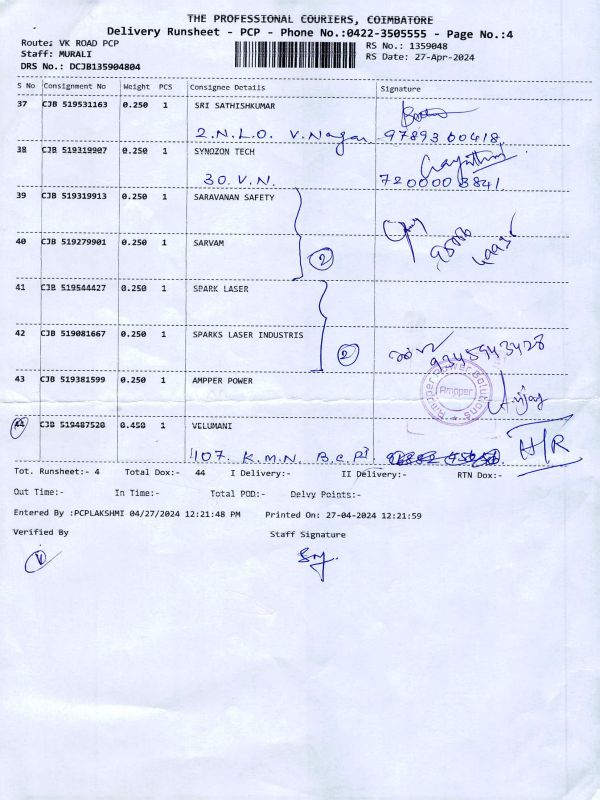 THE PROFESSIONAL COURIERS, COIMBATORE
Delivery Runsheet - PCP - Phone No.:0422-3505555 - Page No.:4
Route: VK ROAD PCP
RS No.: 1359048
Staff: MURALI
RS Date: 27-Apr-2024
DRS No.: DCJB135904804
S No Consignment No Weight PCS Consignee Details Signature
37 CJB 519531163 0.250 1 SRI SATHISHKUMAR
2.N.L.O. V.Nagar 97893 00418
38 CJB 519319907 0.250 1 SYNOZON TECH
30. V.N. 7200003841
39 CJB 519319913 0.250 1 SARAVANAN SAFETY
2
40 CJB 519279901 0.250 1 SARVAM
41 CJB 519544427 0.250 1 SPARK LASER
2
42 CJB 519081667 0.250 1 SPARKS LASER INDUSTRIS
9345943428
43 CJB 519381599 0.250 1 AMPPER POWER
Ampper Power Solutions
Ampper
44 CJB 519487520 0.450 1 VELUMANI
107. K.M.N. H/R
Tot. Runsheet:- 4 Total Dox:- 44 I Delivery:- II Delivery:- RTN Dox:-
Out Time:- In Time:- Total POD:- Delvy Points:-
Entered By :PCPLAKSHMI 04/27/2024 12:21:48 PM Printed On: 27-04-2024 12:21:59
Verified By Staff Signature